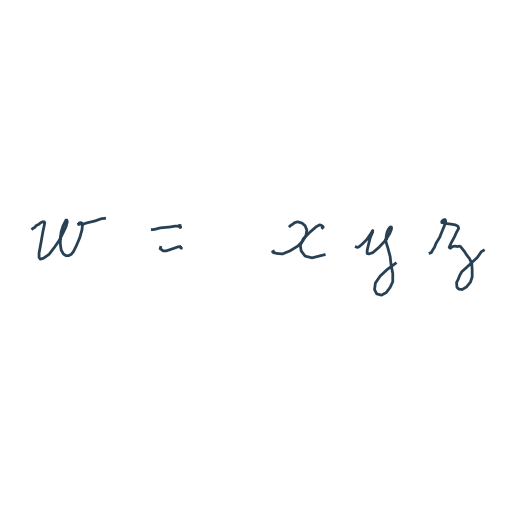 w = x y z